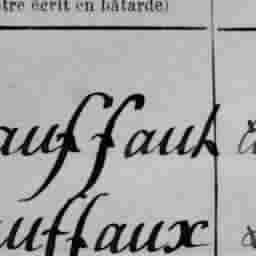 tre écrit en bâtarde)
auffault
auffaux